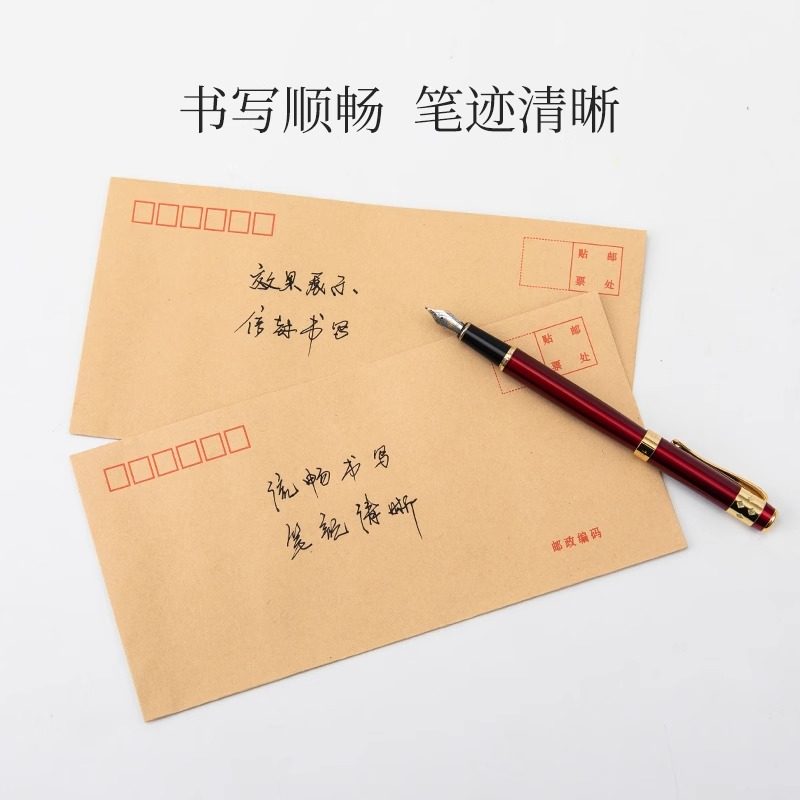 书写顺畅 笔迹清晰
贴 邮
票 处
效果展示、
信封书写
贴 邮
票 处
流畅书写
笔迹清晰
邮政编码